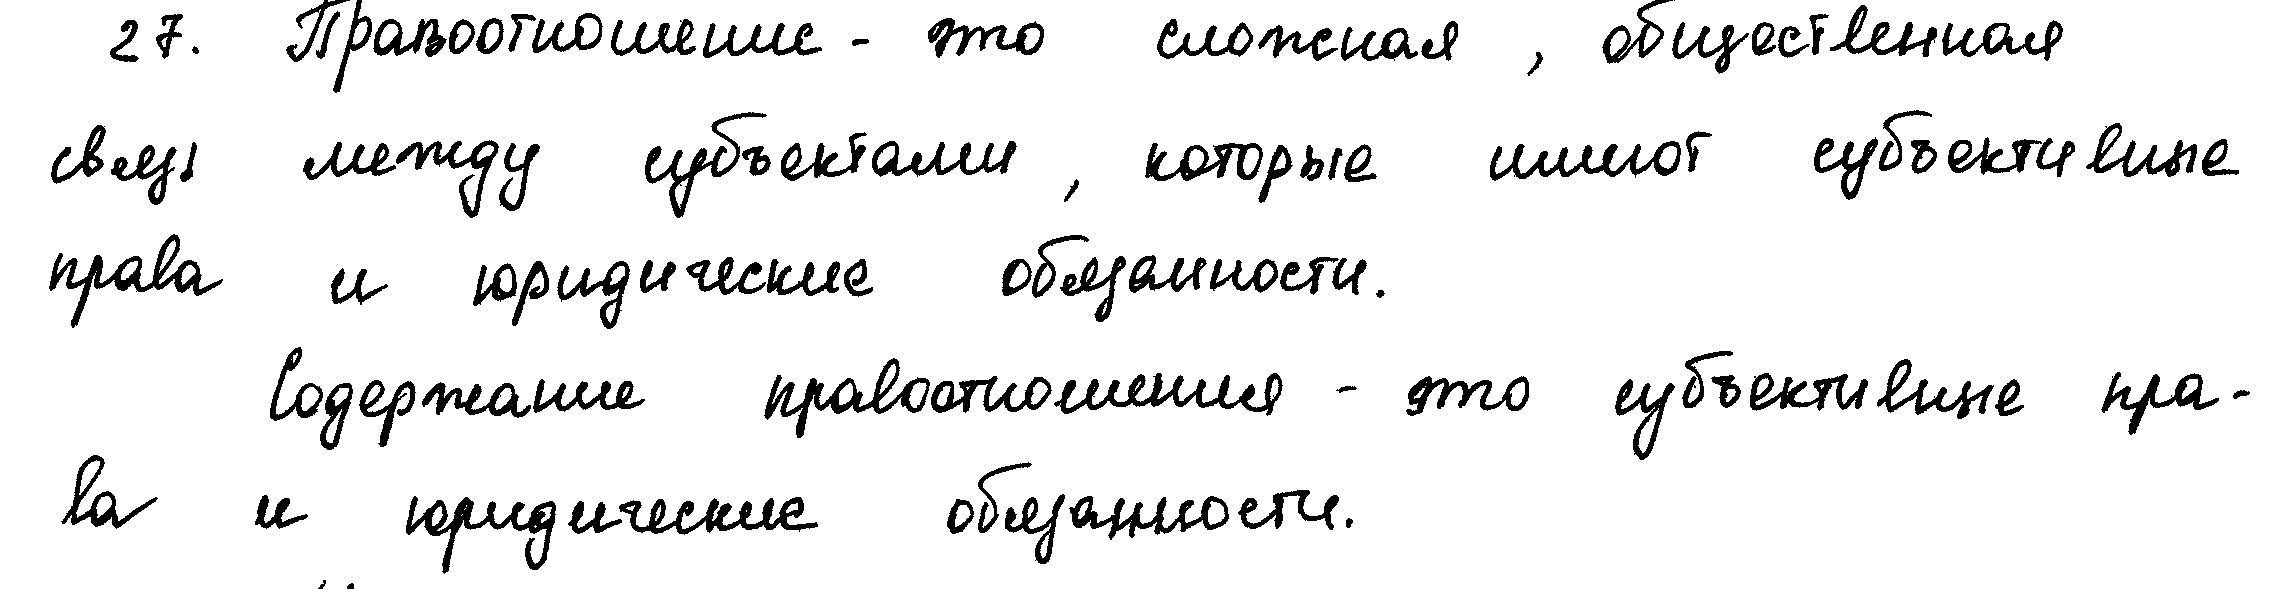 27. Правоотношение - это сложная, общественная
связь между субъектами, которые имеют субъективные
права и юридические обязанности.
Содержание правоотношения - это субъективные пра-
ва и юридические обязанности.